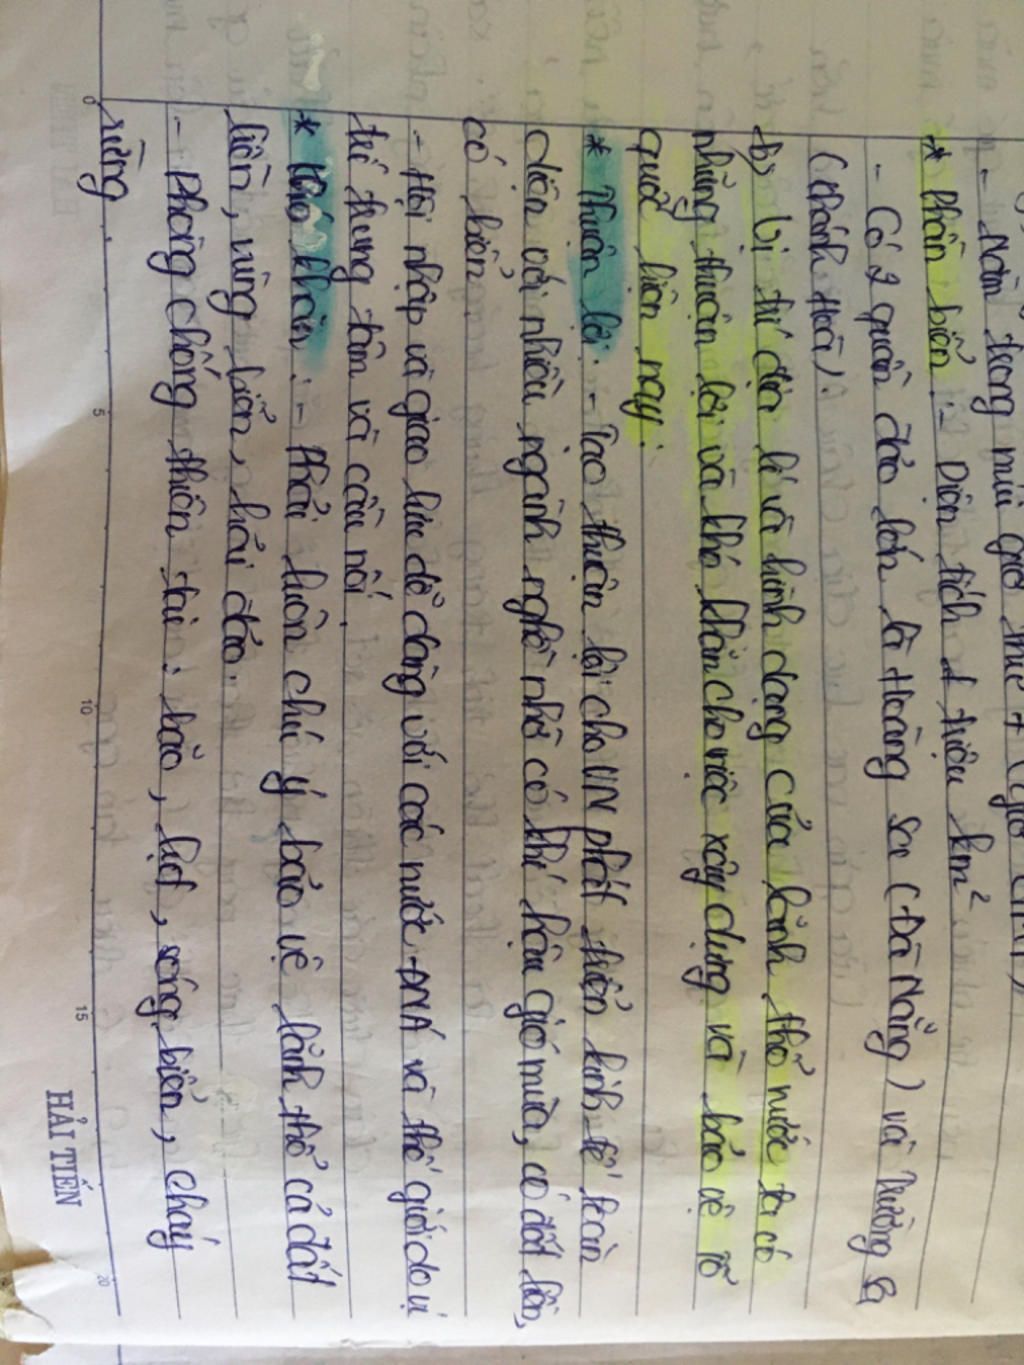 - Nằm trong múi giờ thứ 7 (giờ GMT)
* Phần biển: - Diện tích 1 triệu km²
- Có 2 quần đảo lớn là Hoàng Sa (Đà Nẵng) và Trường Sa
(Khánh Hoà).
b) Vị trí địa lí và hình dạng của lãnh thổ nước ta có
những thuận lợi và khó khăn cho việc xây dựng và bảo vệ tổ
quốc hiện nay:
* Thuận lợi: - Tạo thuận lợi cho VN phát triển kinh tế toàn
diện với nhiều ngành nghề nhờ có khí hậu gió mùa, có đất liền,
có biển.
- Hội nhập và giao lưu dễ dàng với các nước ĐNÁ và thế giới do vị
trí trung tâm và cầu nối.
* Khó khăn: - Phải luôn chú ý bảo vệ lãnh thổ cả đất
liền, vùng biển, hải đảo.
- Phòng chống thiên tai: bão, lụt, sóng biển, cháy
rừng
0 5 10 15 20
HẢI TIẾN